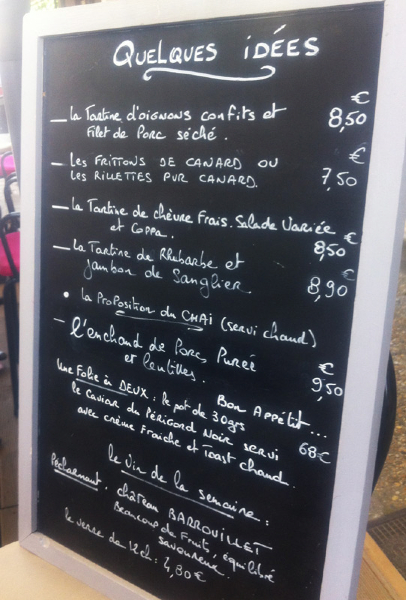 QUELQUES iDÉES
— la Tartine d'oignons confits et
Filet de Porc séché.
€
8,50
— LES FRITTONS DE CANARD OU
LES RILLETTES PUR CANARD.
€
7,50
— la Tartine de chèvre Frais. Salade Variée
et Coppa.
€
8,50
— la Tartine de Rhubarbe et
jambon de Sanglier.
€
8,90
• la Proposition du CHAI (servi chaud)
— l'enchaud de Porc, Purée
et lentilles.
€
9,50
Bon Appétit...
Une Folie à DEUX : le pot de 30grs
le Caviar du Périgord Noir servi
avec crème Fraiche et Toast chaud.
68€
le Vin de la semaine :
Pécharmant. château BARROUILLET
Beaucoup de Fruits, équilibré
savoureux.
le verre de 12cl : 4,80€